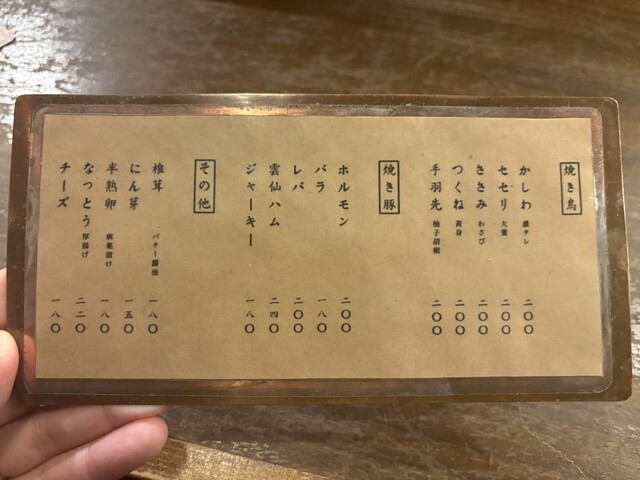 焼き鳥
かしわ 濃タレ 二〇〇
セセリ 大葉 二〇〇
ささみ わさび 二〇〇
つくね 黄身 二〇〇
手羽先 柚子胡椒 二〇〇
焼き豚
ホルモン 二〇〇
バラ 一八〇
レバ 二〇〇
雲仙ハム 二四〇
ジャーキー 一八〇
その他
椎茸 バター醤油 一八〇
にん芽 一五〇
半熟卵 麻薬漬け 一八〇
なっとう 厚揚げ 二二〇
チーズ 一八〇